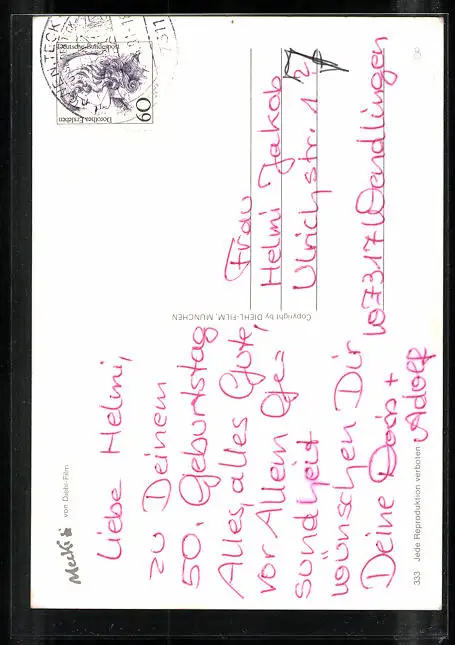 Mecki
von Diehl-Film
Liebe Helmi,
zu Deinem
50. Geburtstag
Alles alles Gute,
vor Allem Ge=
sundheit
wünschen Dir
Deine Doris +
Adolf
333 Jede Reproduktion verboten
Copyright by DIEHL-FILM, MÜNCHEN
Dorothea Erxleben
60
Deutsche Bundespost
Frau
Helmi Jakob
Ulrichstr. 12
W 7317 Wendlingen